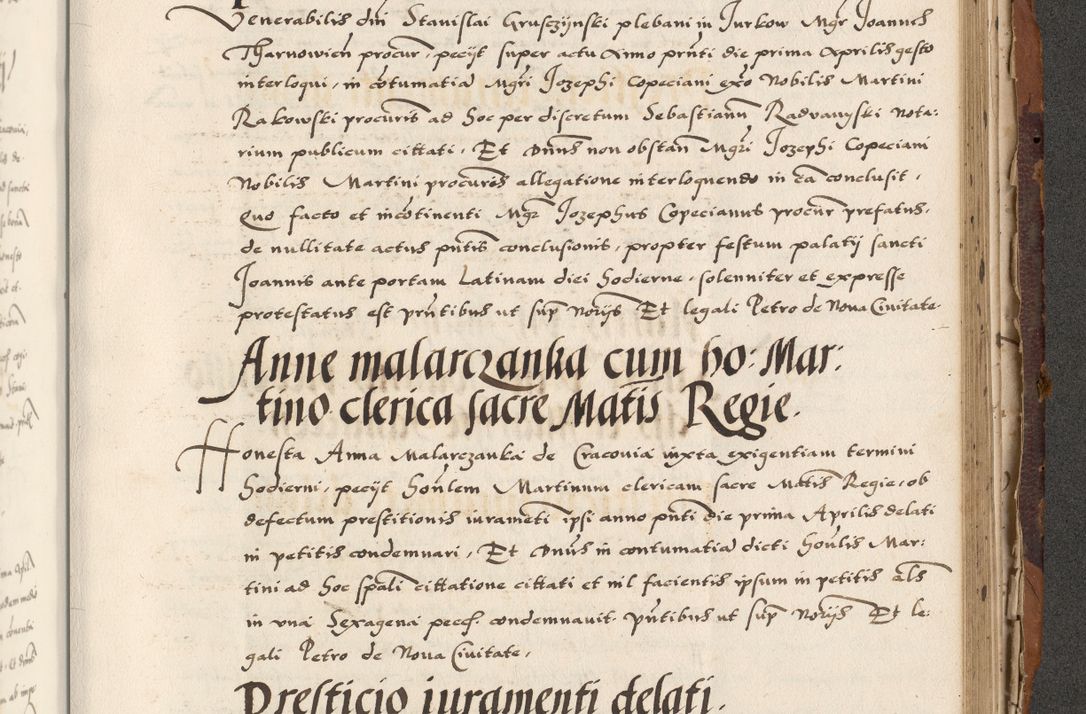 Venerabilis dni Stanislai Grusczijnski plebani in Jurkow Mgr Joannes
Tharnowien procur, pecijt super actu Anno pnti die prima Aprilis gesto
interloqui, in cotumatia Mgri Jozephi Copeciani exo Nobilis Martini
Rakowski procuris ad hoc per discretum Sebastianu Radvanijski nota:
rium publicum cittati, Et Dnns non obstan Mgri Jozephi Copeciani
Nobilis Martini procuris allegatione interloquendo in ca conclusit,
Quo facto et incotinenti Mgr Jozephus Copecianus procur prefatus,
de nullitate actus pntis conclusionis, propter festum palatij sancti
Joannis ante portam Latinam diei hodierne, solenniter et expresse
protestatus est pntibus ut sup Norijs Et legali Petro de Noua Ciuitate
Anne malarczanka cum ho: Mar:
tino clerica sacre Matis Regie.
Honesta Anna Malarczanka de Cracouia iuxta exigentiam termini
hodierni, pecijt honlem Martinum clericam sacre Matis Regie, ob
defectum prestitionis iurameti ipsi anno pnti die prima Aprilis delati
in petitis condemnari, Et Dnus in contumatia dicti honlis Mar:
tini ad hoc spali cittatione cittati et nil facientis ipsum in petitis als
in vna Sexagena pecc. condemnauit. pntibus ut sup Norijs Et le:
gali Petro de Noua Ciuitate,
Presticio iuramenti delati.